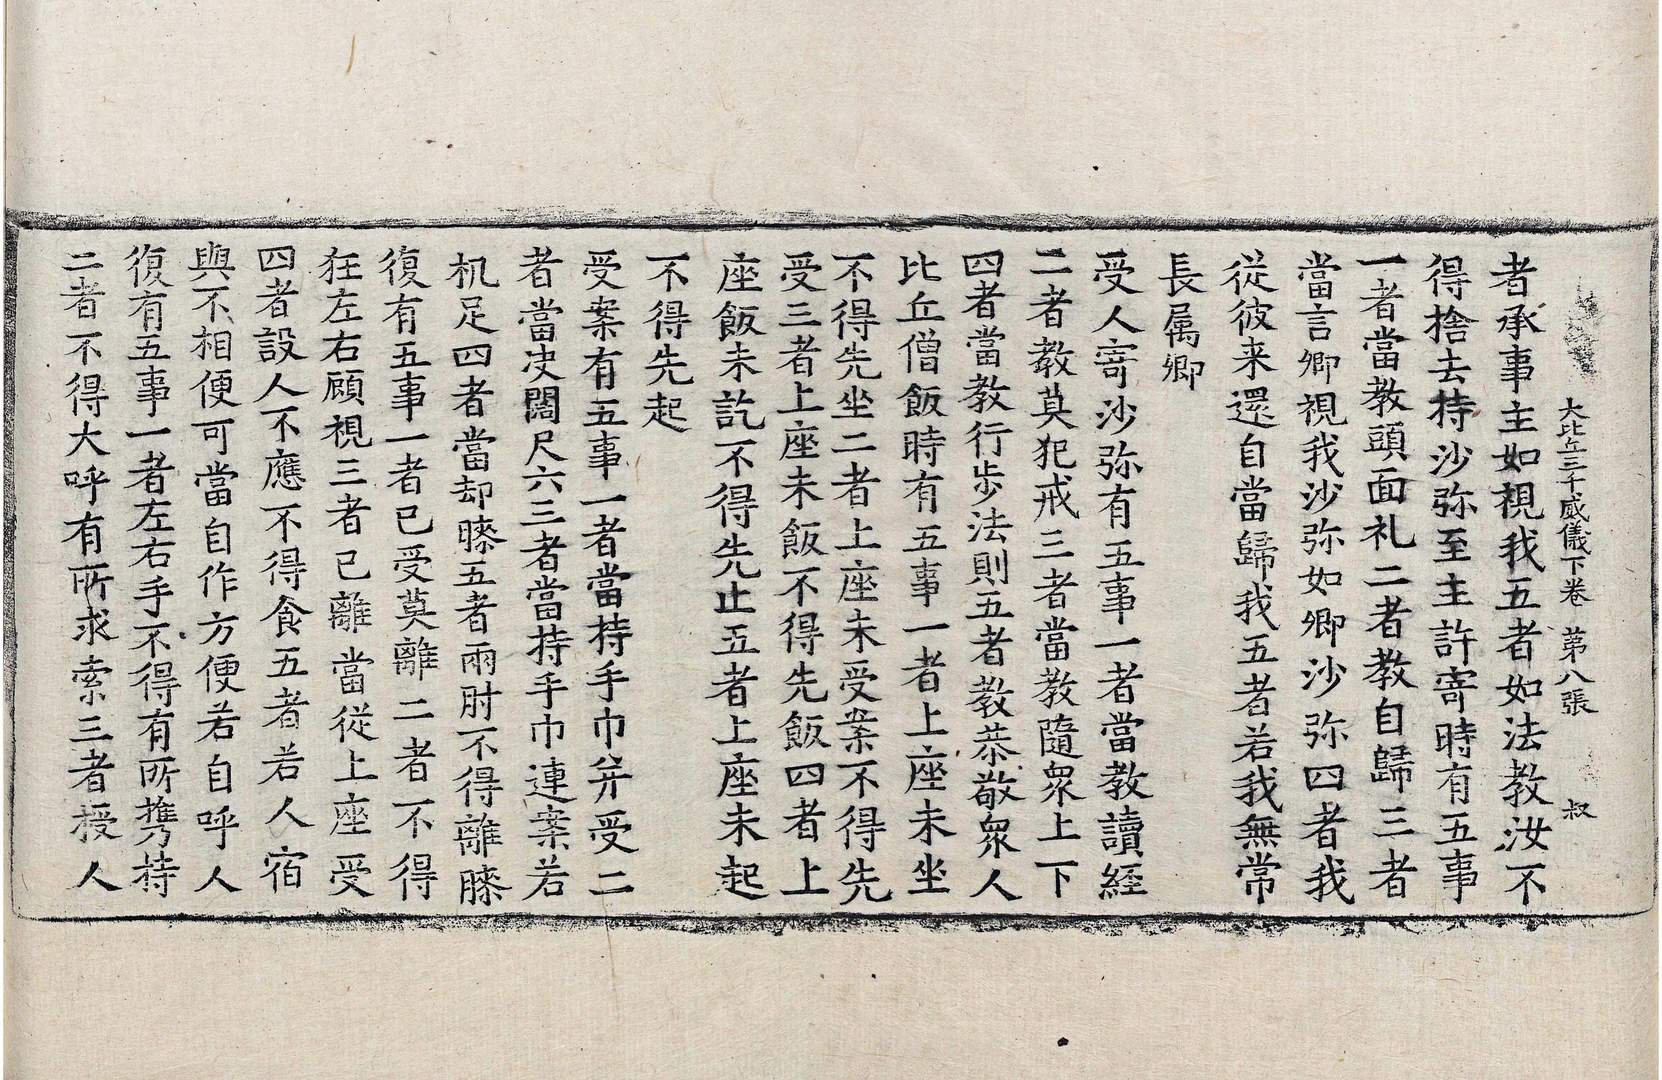 大比丘三千威儀下卷 第八張 叔
者承事主如視我五者如法教汝不
得捨去持沙弥至主許寄時有五事
一者當教頭面礼二者教自歸三者
當言卿視我沙弥如卿沙弥四者我
從彼来還自當歸我五者若我無常
長属卿
受人寄沙弥有五事一者當教讀經
二者教莫犯戒三者當教隨衆上下
四者當教行步法則五者教恭敬衆人
比丘僧飯時有五事一者上座未坐
不得先坐二者上座未受案不得先
受三者上座未飯不得先飯四者上
座飯未訖不得先止五者上座未起
不得先起
受案有五事一者當持手巾并受二
者當決闊尺六三者當持手巾連案若
机足四者當却膝五者兩肘不得離膝
復有五事一者已受莫離二者不得
狂左右顧視三者已離當從上座受
四者設人不應不得食五者若人宿
與不相便可當自作方便若自呼人
復有五事一者左右手不得有所攜持
二者不得大呼有所求索三者授人